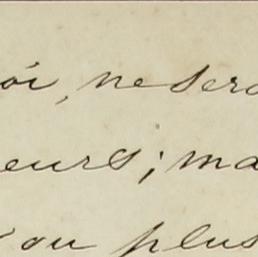 oi, ne sero
eurs; ma
ou plus